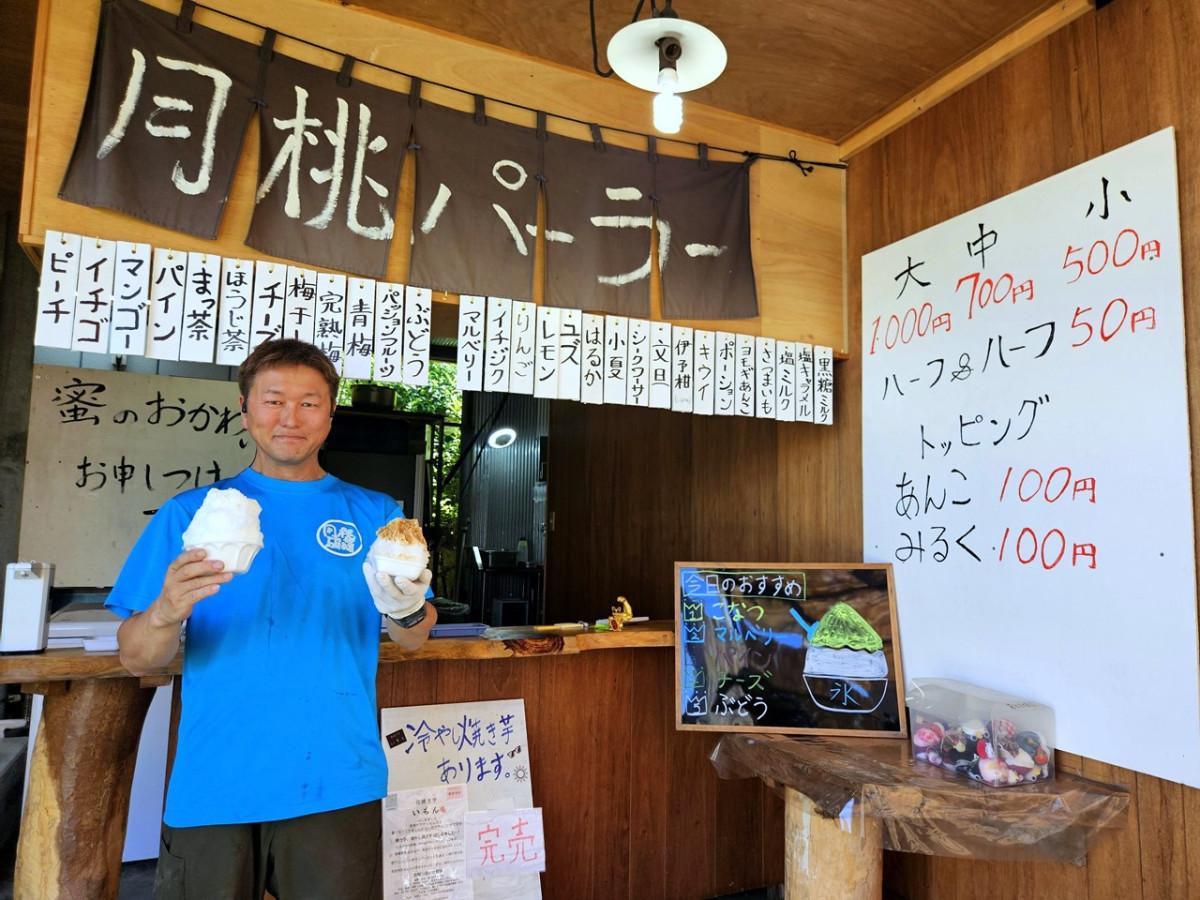 月桃パーラー
ピーチ
イチゴ
マンゴー
パイン
まっ茶
ほうじ茶
チーズ
梅干し
完熟梅
青梅
パッションフルーツ
ぶどう
マルベリー
イチジク
りんご
レモン
ユズ
はるか
小夏
シークワーサー
文旦
伊予柑
キウイ
ポーション
ヨモギあんこ
さつまいも
塩ミルク
塩キャラメル
黒糖ミルク
蜜のおかわ
お申しつけ
大 中 小
1000円 700円 500円
ハーフ&ハーフ 50円
トッピング
あんこ 100円
みるく 100円
今日のおすすめ
1 こなつ
2 マルベリー
チーズ
5 ぶどう
氷
冷やし焼き芋
あります。
完売